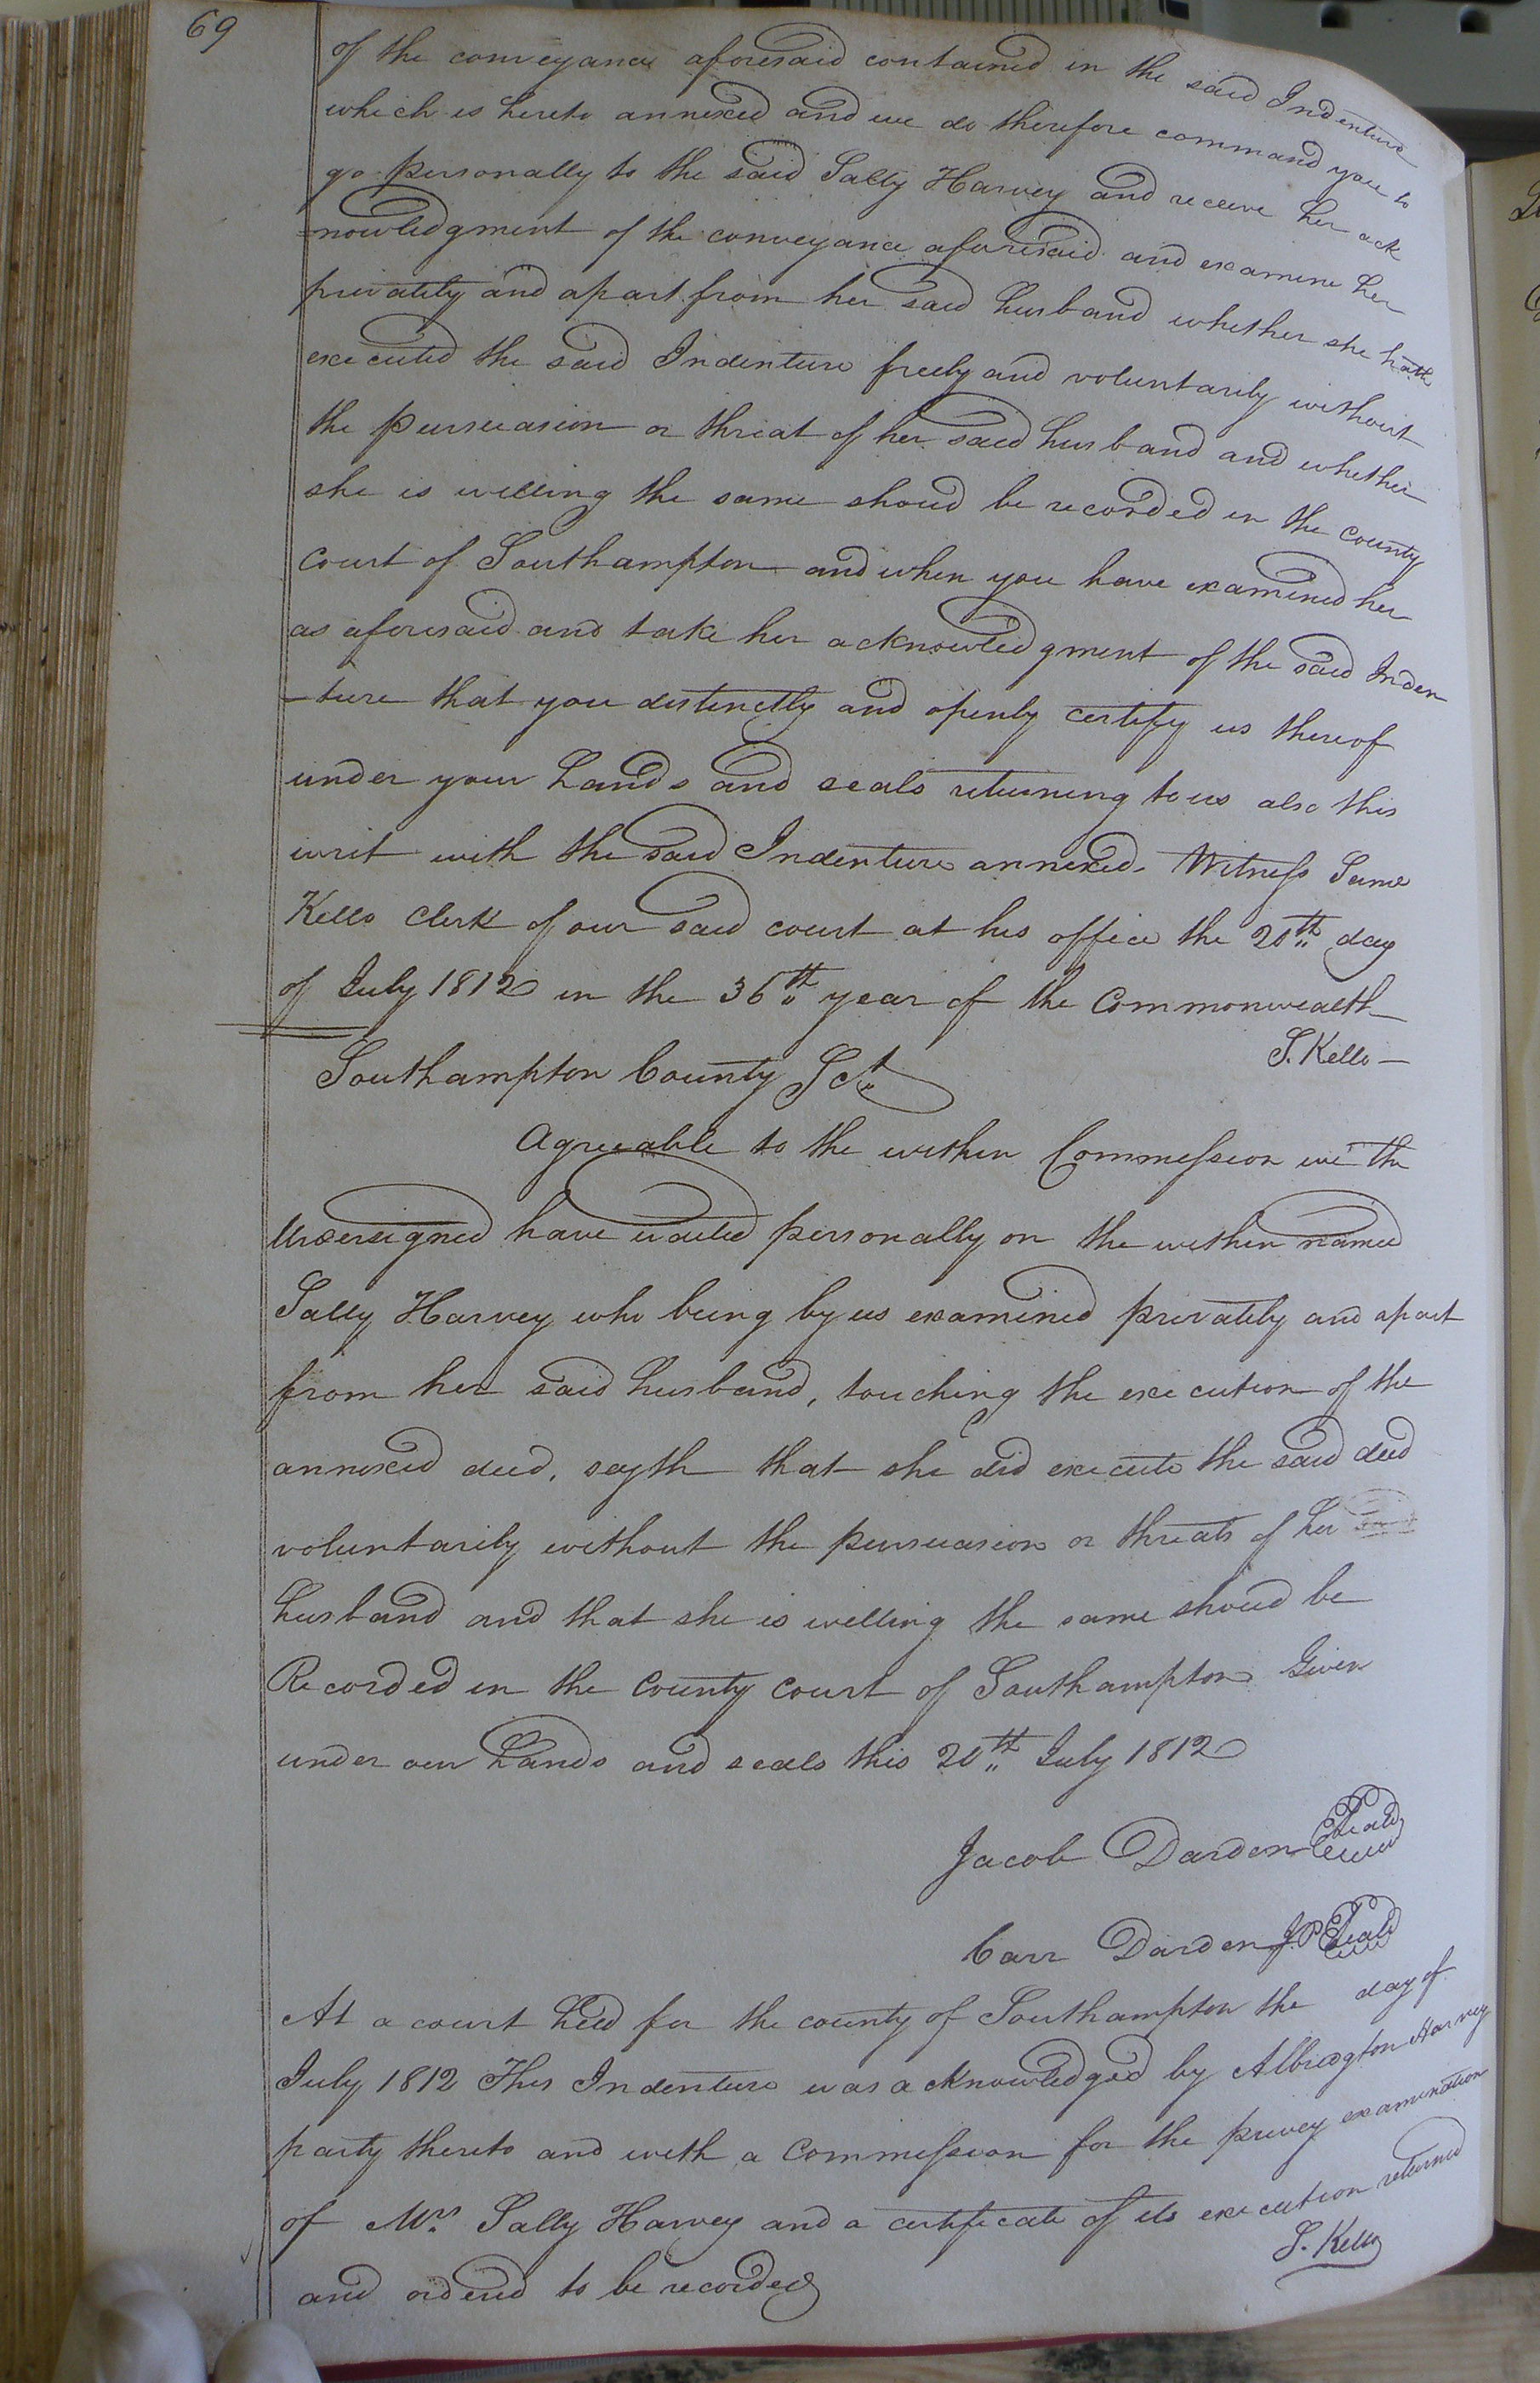 69
of the conveyance aforesaid contained in the said Indenture
which is hereto annexed and we do therefore command you to
go personally to the said Sally Harvey and receive her ack
=nowledgment of the conveyance aforesaid and examine her
privately and apart from her said husband whether she hath
executed the said Indenture freely and voluntarily without
the persuasion or threat of her said husband and whether
she is willing the same shoud be recorded in the county
Court of Southampton and when you have examined her
as aforesaid and take her acknowledgment of the said Inden
-ture that you distinctly and openly certify us thereof
under your hands and seals returning to us also this
writ with the said Indenture annexed. Witness Saml
Kello Clerk of our said court at his office the 20th day
of July 1812 in the 36th year of the Commonwealth
S. Kello
Southampton County Sct
Agreeable to the within Commission we the
Undersigned have waited personally on the within named
Sally Harvey who being by us examined privately and apart
from her said husband, touching the execution of the
annexed deed, sayth that she did execute the said deed
voluntarily without the persuasion or threats of her said
husband and that she is willing the same shoud be
Recorded in the County Court of Southampton Given
under our hands and seals this 20th July 1812
Jacob Darden Seal
Carr Darden J.P Seal
At a court held for the county of Southampton the day of
July 1812 This Indenture was acknowledged by Albridgton Harvey
party thereto and with a Commission for the privey examination
of Mrs. Sally Harvey and a certificate of its execution returned
and orderd to be recorded
S. Kello